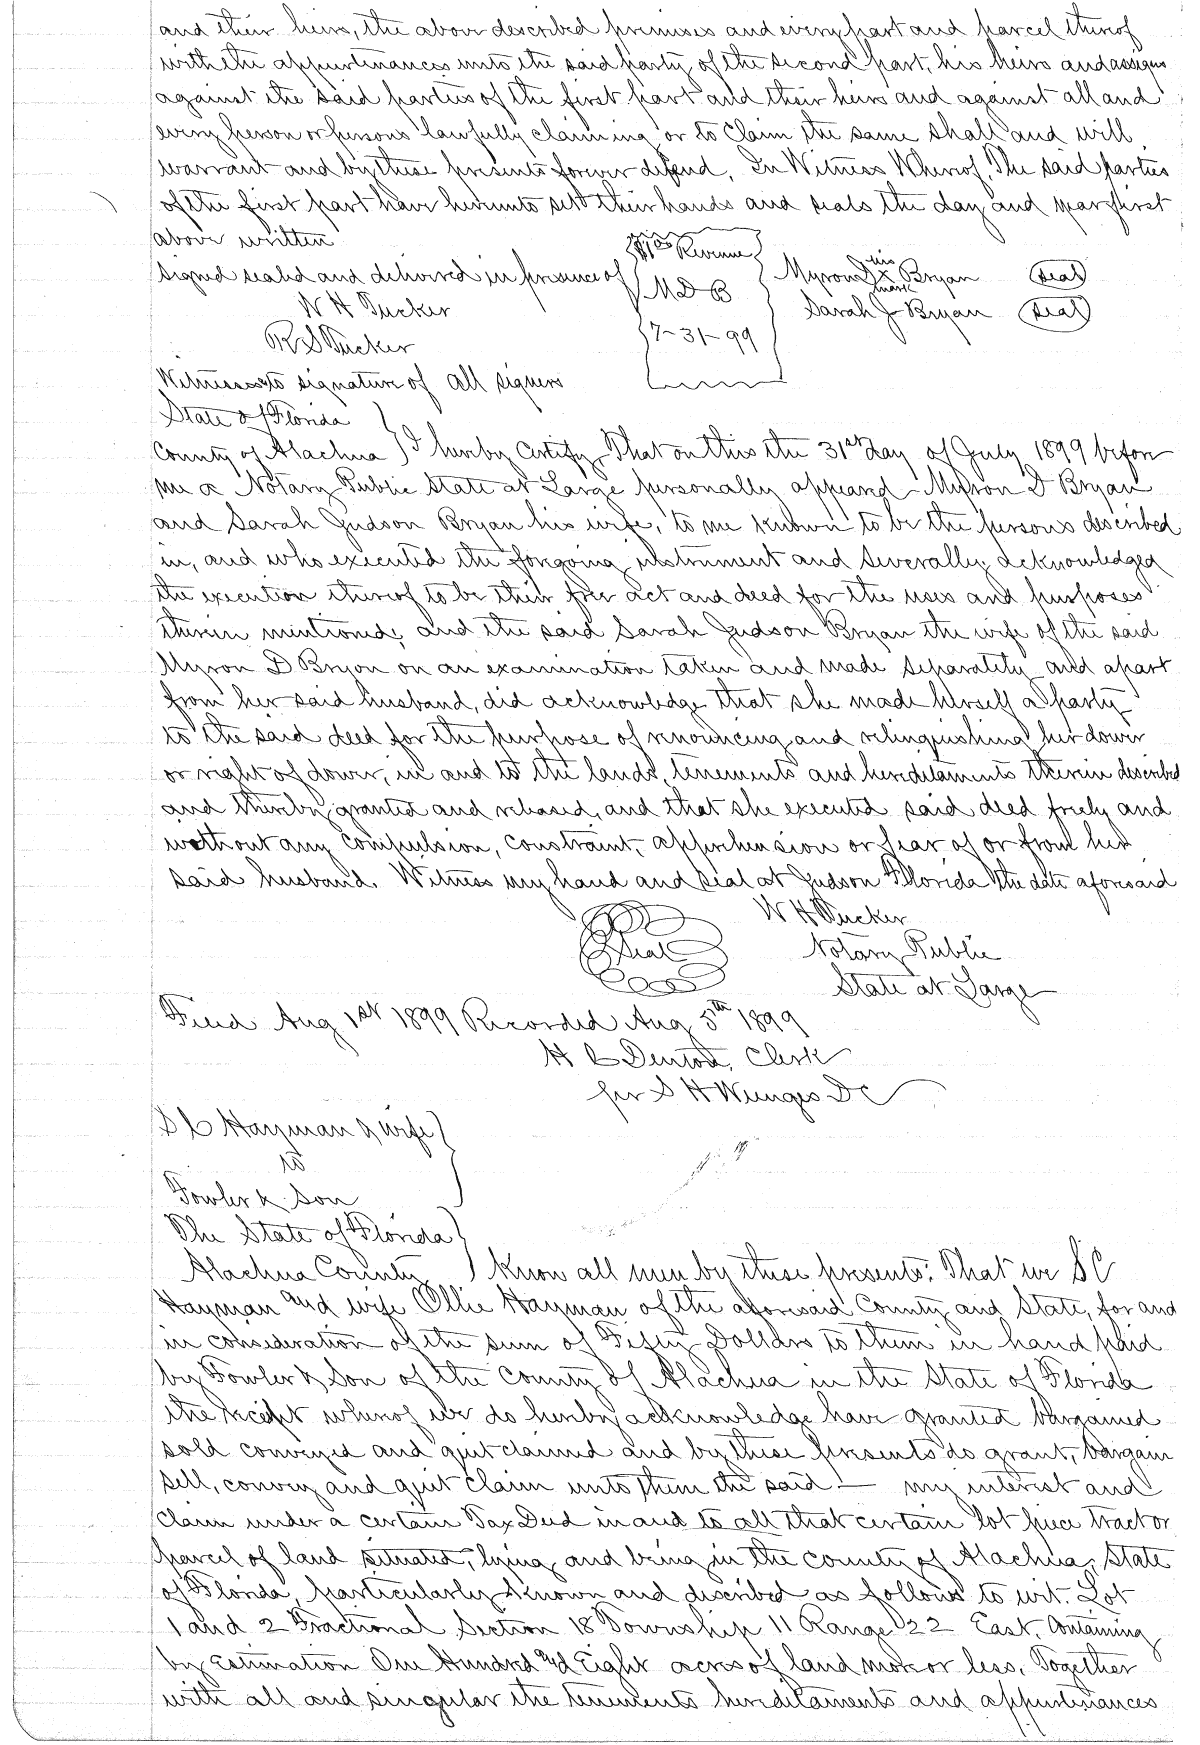 and their heirs, the above described premises and every part and parcel thereof
with the appurtenances unto the said party of the second part, his heirs and assigns
against the said parties of the first part and their heirs and against all and
every person or persons lawfully claiming or to Claim the same shall and will
warrant and by these presents forever defend, In Witness Whereof, The said parties
of the first part have hereunto sett their hands and seals the day and year first
above written
Signed sealed and delivered in presence of
W H Tucker
R S Tucker
Witnesses to signature of all signers
$1 00 Revenue
M D B
7-31-99
Myron D his x mark Bryan (seal)
Sarah J Bryan (seal)
State of Florida
County of Alachua } I hereby Certify, That on this the 31st Day of July 1899 before
me a Notary Public State at Large personally appeared Myron D Bryan
and Sarah Judson Bryan his wife, to me known to be the persons described
in, and who executed the forgoing instrument and severally acknowledged
the execution thereof to be their free act and deed for the uses and purposes
therein mentioned; and the said Sarah Judson Bryan the wife of the said
Myron D Bryon on an examination taken and made separately and apart
from her said husband, did acknowledge that she made herself a party
to the said deed for the purpose of renouncing and relinquishing her dower
or right of dower, in and to the lands, tenements and hereditaments therein described
and thereby granted and released, and that she executed said deed freely and
without any compulsion, constraint, apprehension or fear of or from her
said husband. Witness my hand and seal at Judson Florida the date aforesaid
Seal
W H Tucker
Notary Public
State at Large
Filed Aug 1st 1899 Recorded Aug 5th 1899
H C Denton, Clerk
per S H Wienges D C
S C Hayman & wife
to
Fowler & Son
The State of Florida
Alachua County } Know all men by these presents: That we S C
Hayman and wife Ollie Hayman of the aforesaid County and State, for and
in consideration of the sum of Fifty Dollars to them in hand paid
by Fowler & Son of the County of Alachua in the State of Florida
the receipt whereof we do hereby acknowledge have granted bargained
sold conveyed and quit claimed and by these presents do grant, bargain
sell, convey and quit claim unto them the said — my interest and
claim under a certain Tax Deed in and to all that certain lot piece tract or
parcel of land situated, lying and being in the county of Alachua, State
of Florida, particularly known and described as follows to wit. Lot
1 and 2 Fractional Section 18 Township 11 Range 22 East, Containing
by Estimation One Hundred and Eight acres of land more or less, Together
with all and singular the tenements hereditaments and appurtenances